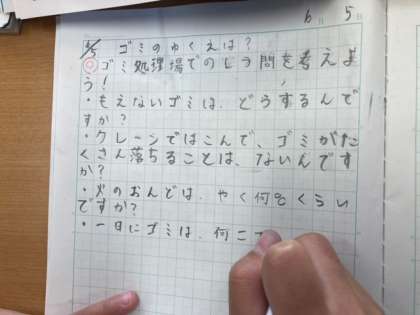 6 5
6/5 ゴミのゆくえは?
◎ゴミ処理場でのしつ問を考えよ
う!
・もえないゴミは、どうするんで
すか?
・クレーンではこんで、ゴミがた
くさん落ちることは、ないんです
か?
・火のおんどは、やく何℃くらい
ですか?
・一日にゴミは、何こ